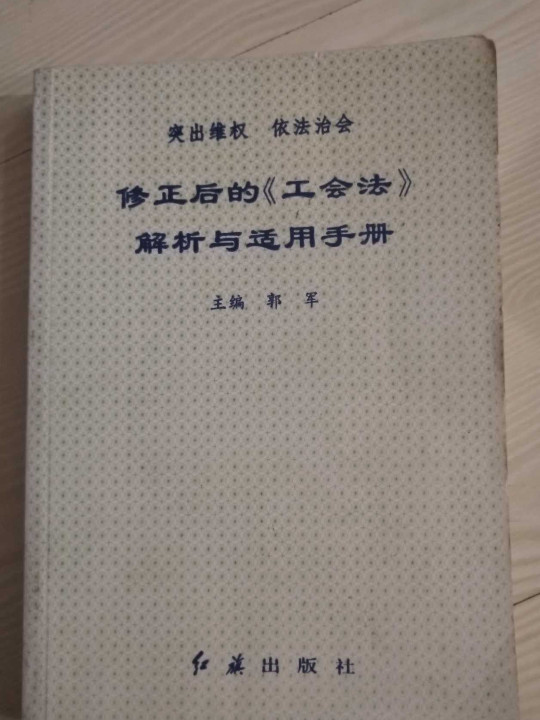 突出维权 依法治会
修正后的《工会法》
解析与适用手册
主编 郭 军
红旗出版社